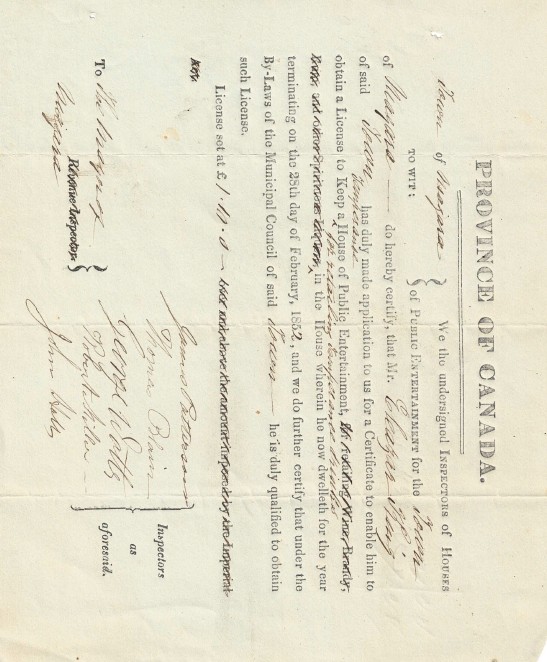 PROVINCE OF CANADA.
Town of Niagara } We the undersigned INSPECTORS OF HOUSES
TO WIT: } of PUBLIC ENTERTAINMENT for the Town
of Niagara — do hereby certify, that Mr.
of said Town has duly made application to us for a Certificate to enable him to
Temperance
obtain a License to Keep a House of Public Entertainment, for retailing Wine, Brandy,
for retailing Temperance
in the House wherein he now dwelleth for the year
terminating on the 28th day of February, 1852, and we do further certify that under the
By-Laws of the Municipal Council of said Town — he is duly qualified to obtain
such License.
License set at £ 1. — over and above the amount imposed by the Imperial
Act.
Inspectors
as
aforesaid.
John
To The
Revenue Inspector, }
Niagara